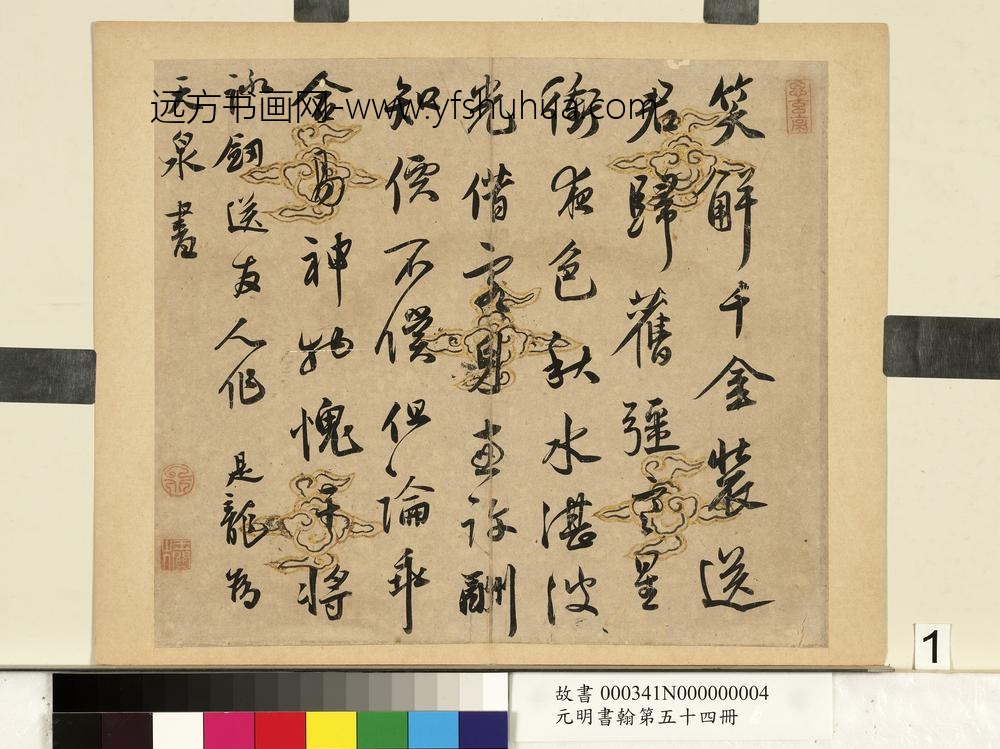 笑解千金裝送
君歸舊疆寒星
衝夜色秋水湛波
光借客身重許酬
知價不僕但論乖
合易神物愧干將
詠劍送友人作 是龍為
天泉書
远方书画网-www.yfshuhua.com
1
故書 000341N000000004
元明書翰第五十四冊